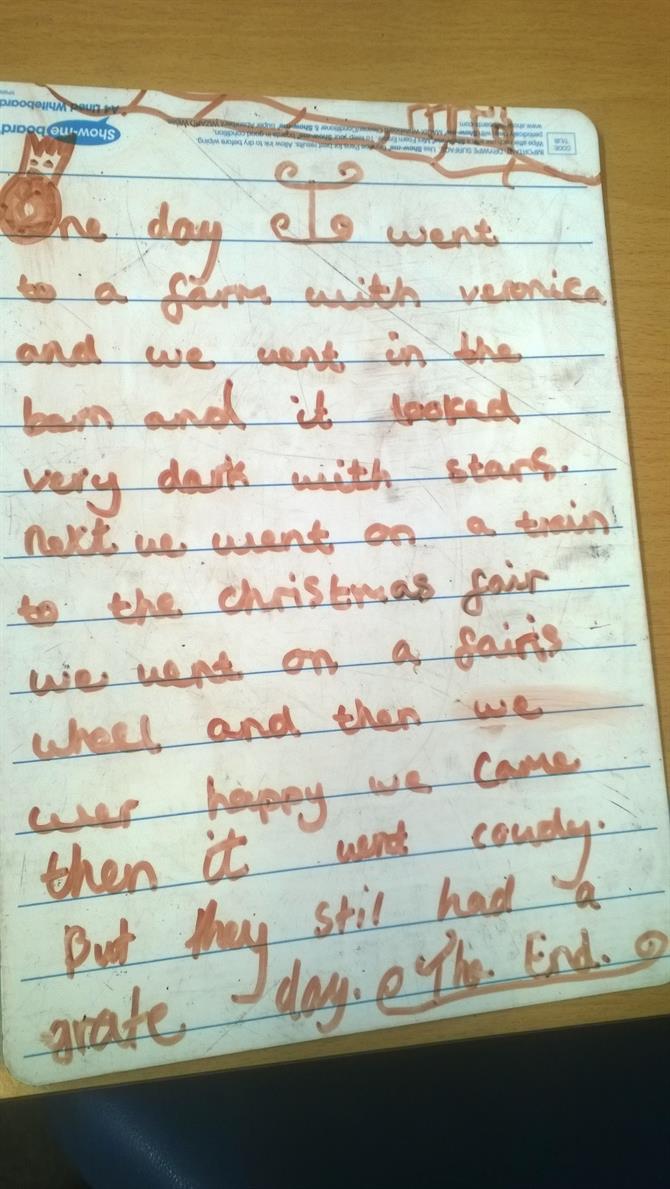 A4 Lined Whiteboard
Show-me board
IMPORTANT: DRYWIPE SURFACE.
CODE
One day I went
to a farm with veronica
and we went in the
barn and it looked
very dark with stars.
Next we went on a train
to the christmas fair
we went on a fairis
wheel and then we
wer happy we came
then it went coudy.
But they stil had a
grate day. The End.